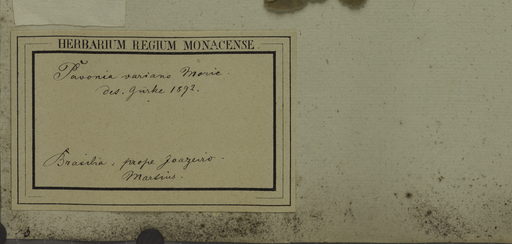 HERBARIUM REGIUM MONACENSE.
Pavonia varians Moric.
det. Gürke 1892.
Brasilia, prope Joazeiro.
Martius.